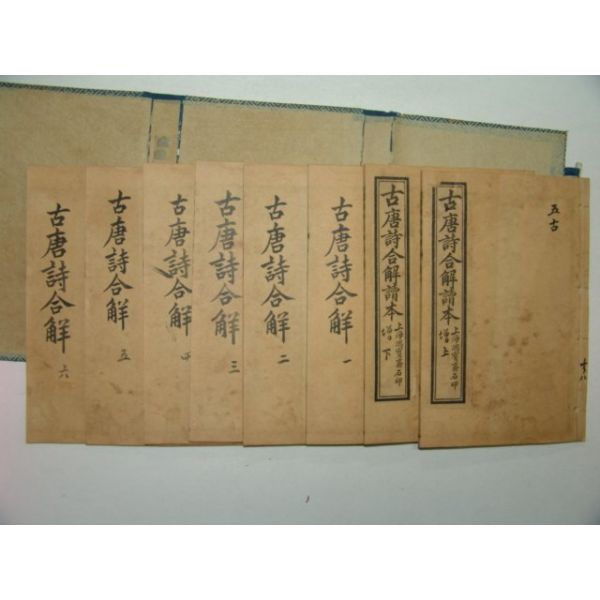 五古
共八
古唐詩合解讀本
上海鴻寶齋石印
增上
古唐詩合解讀本
上海鴻寶齋石印
增下
古唐詩合解 一
古唐詩合解 二
古唐詩合解 三
古唐詩合解 四
古唐詩合解 五
古唐詩合解 六